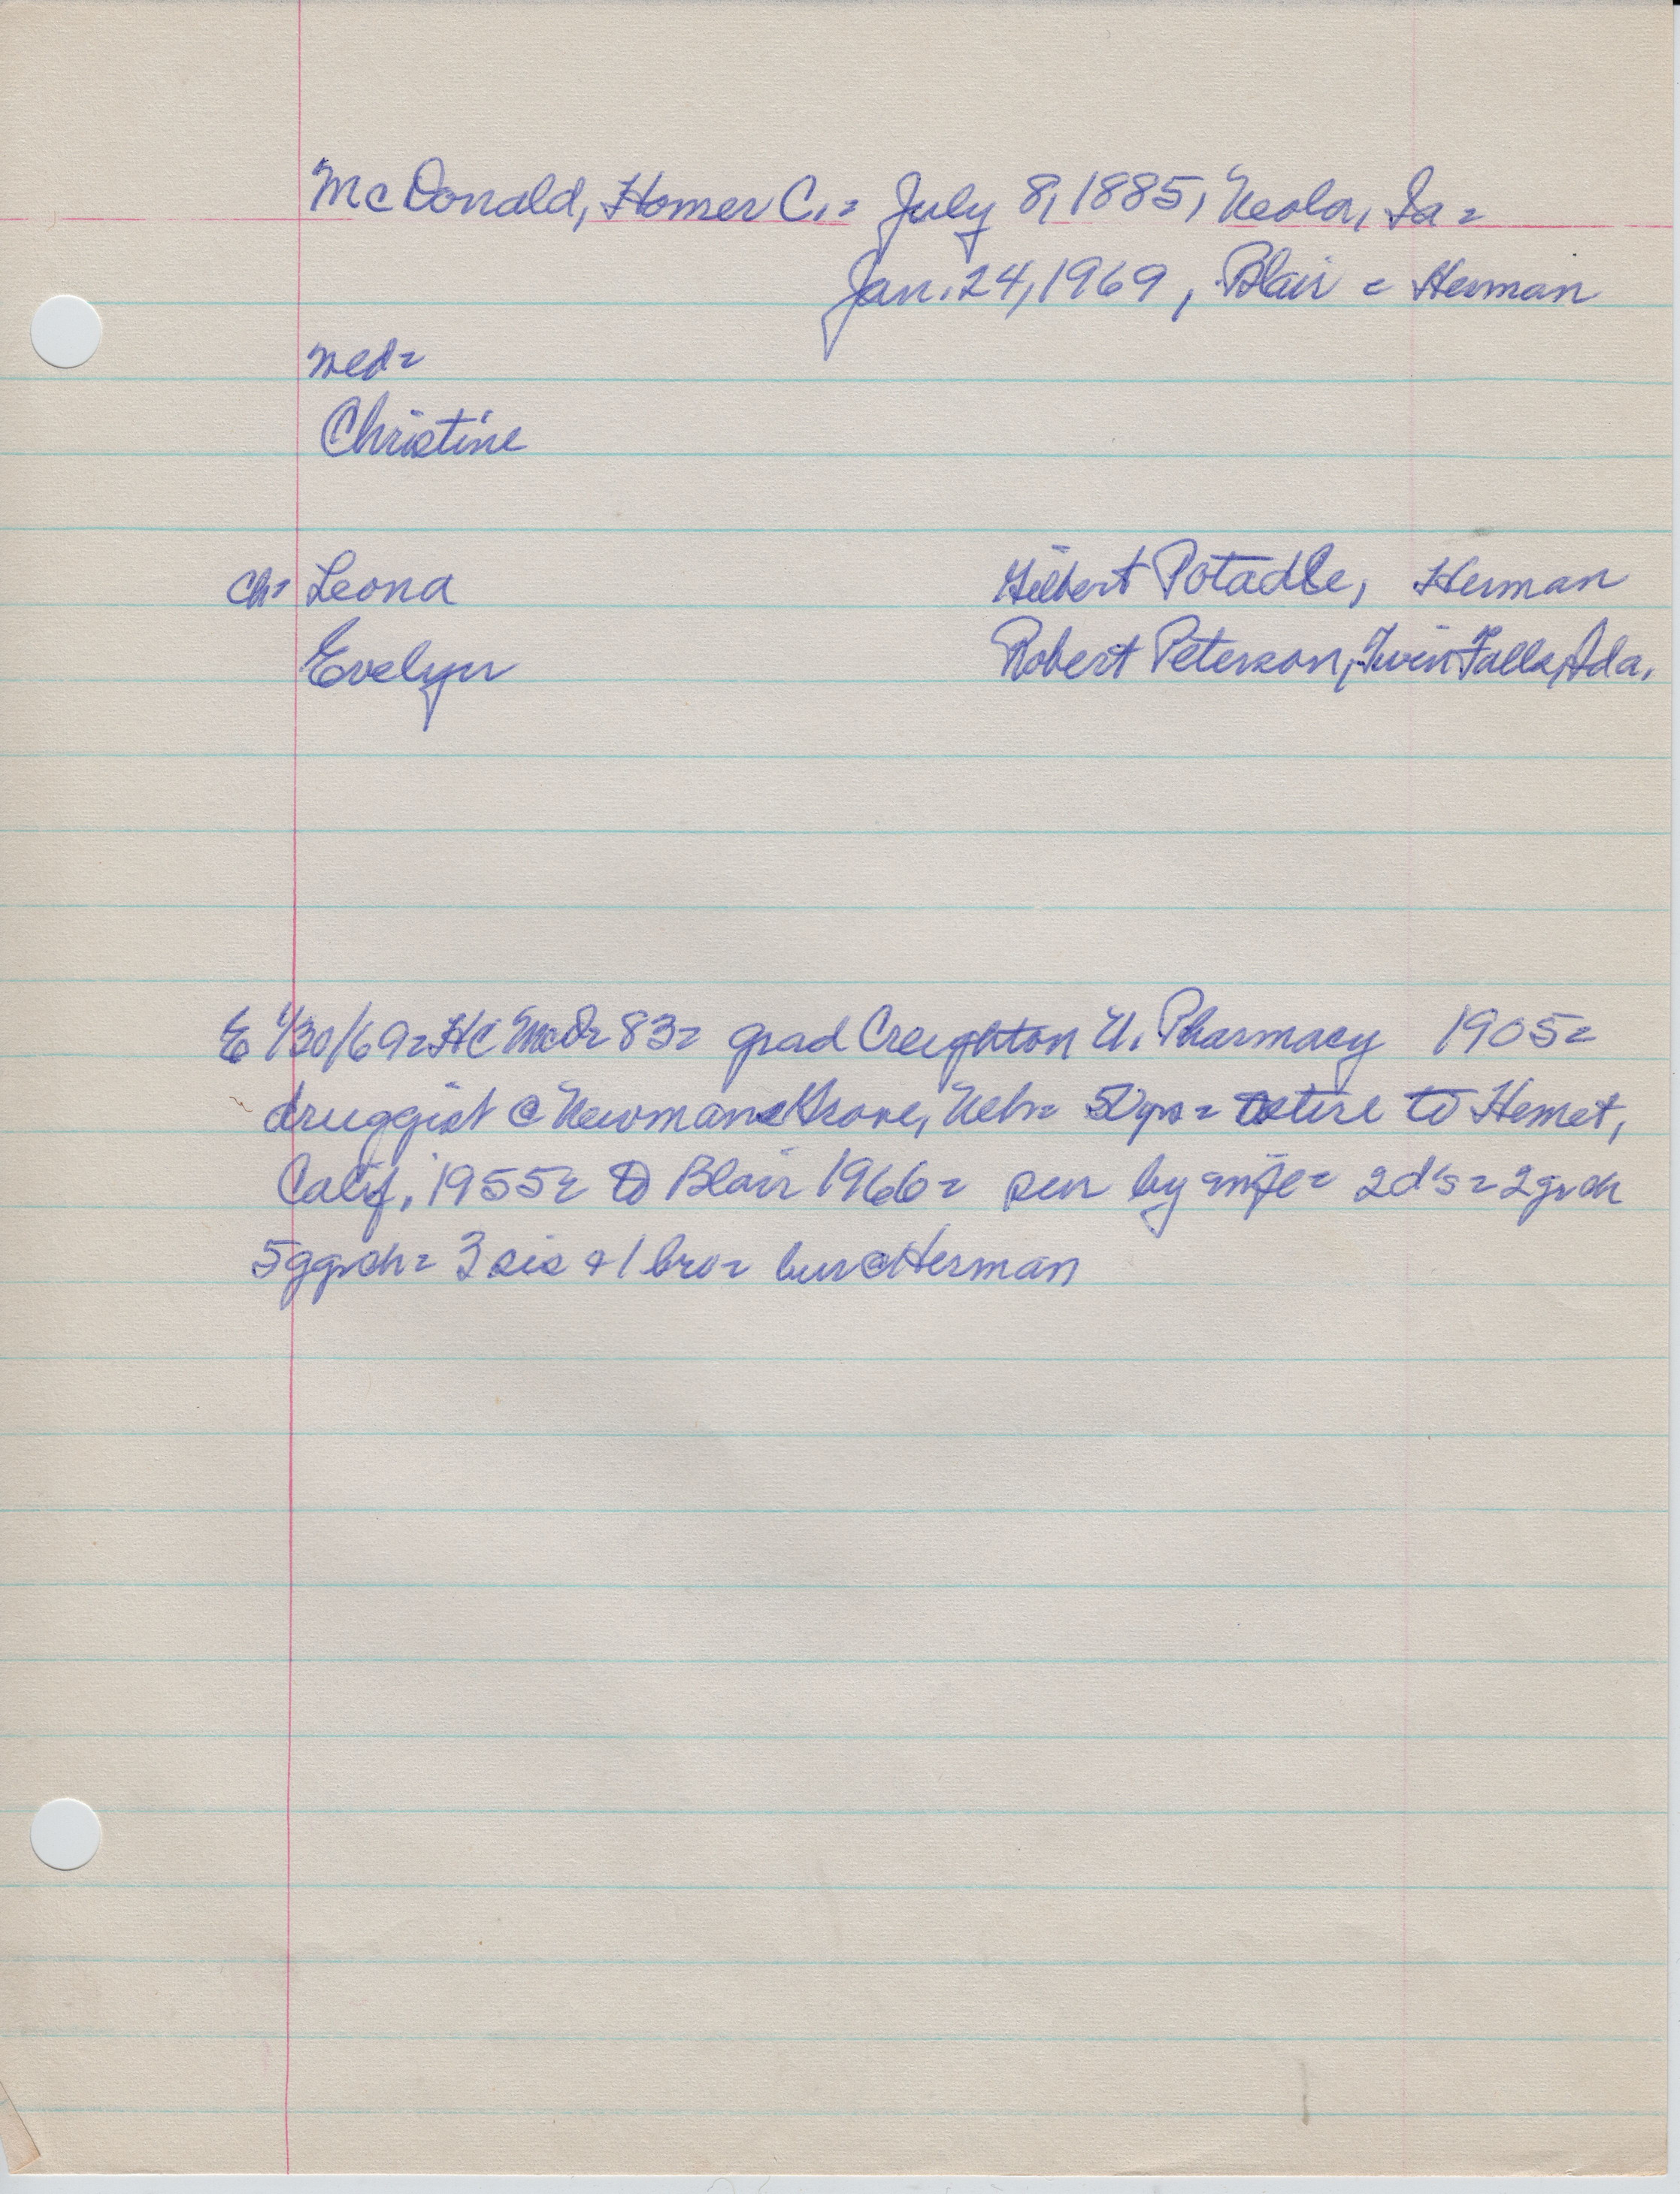 McDonald, Homer C. = July 8, 1885, Neola, Ia =
Jan. 24, 1969, Blair = Herman
wed =
Christine
ch = Leona Gilbert Potadle, Herman
Evelyn Robert Peterson, Twin Falls, Ida.
E 1/30/69 = HC McD = 83 = grad Creighton U. Pharmacy 1905 =
druggist @ Newman Grove, Neb = 50 yrs = retire to Hemet,
Calif, 1955 = to Blair 1966 = sur by wife = 2 d's = 2 grch
5 ggrch = 3 sis + 1 bro = bur @ Herman